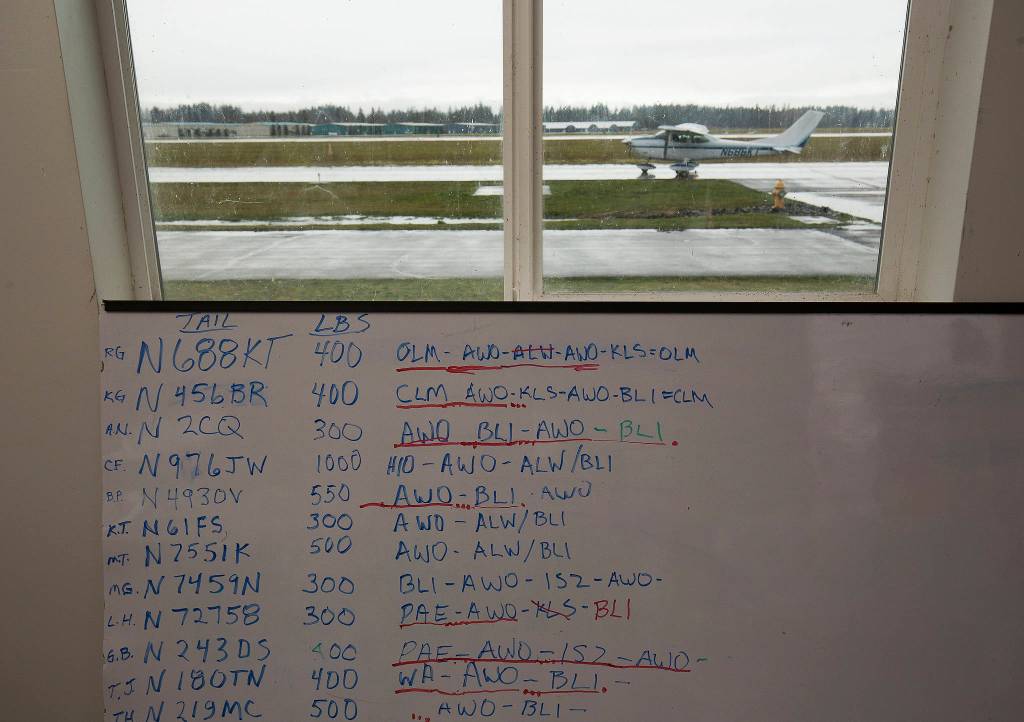 N688KT
TAIL LBS
RG N688KT 400 OLM- AWO-ALW-AWO-KLS=OLM
KG N 456BR 400 CLM AWO-KLS-AWO-BLI=CLM
A.N. N 2CQ 300 AWO BLI-AWO - BLI.
CF. N 976JW 1000 HIO-AWO-ALW/BLI
B.P. N 4930V 550 AWO-BLI. AWO
K.T. N61FS 300 AWO-ALW/BLI
M.T. N 7551K 500 AWO-ALW/BLI
MG. N 7459N 300 BLI-AWO-1S2-AWO-
L.H. N 72758 300 PAE-AWO-KLS-BLI
G.B. N 243DS 400 PAE-AWO-1S2-AWO-
T.J N 180TN 400 WA-AWO-BLI.-
TH N 219MC 500 ... AWO-BLI-